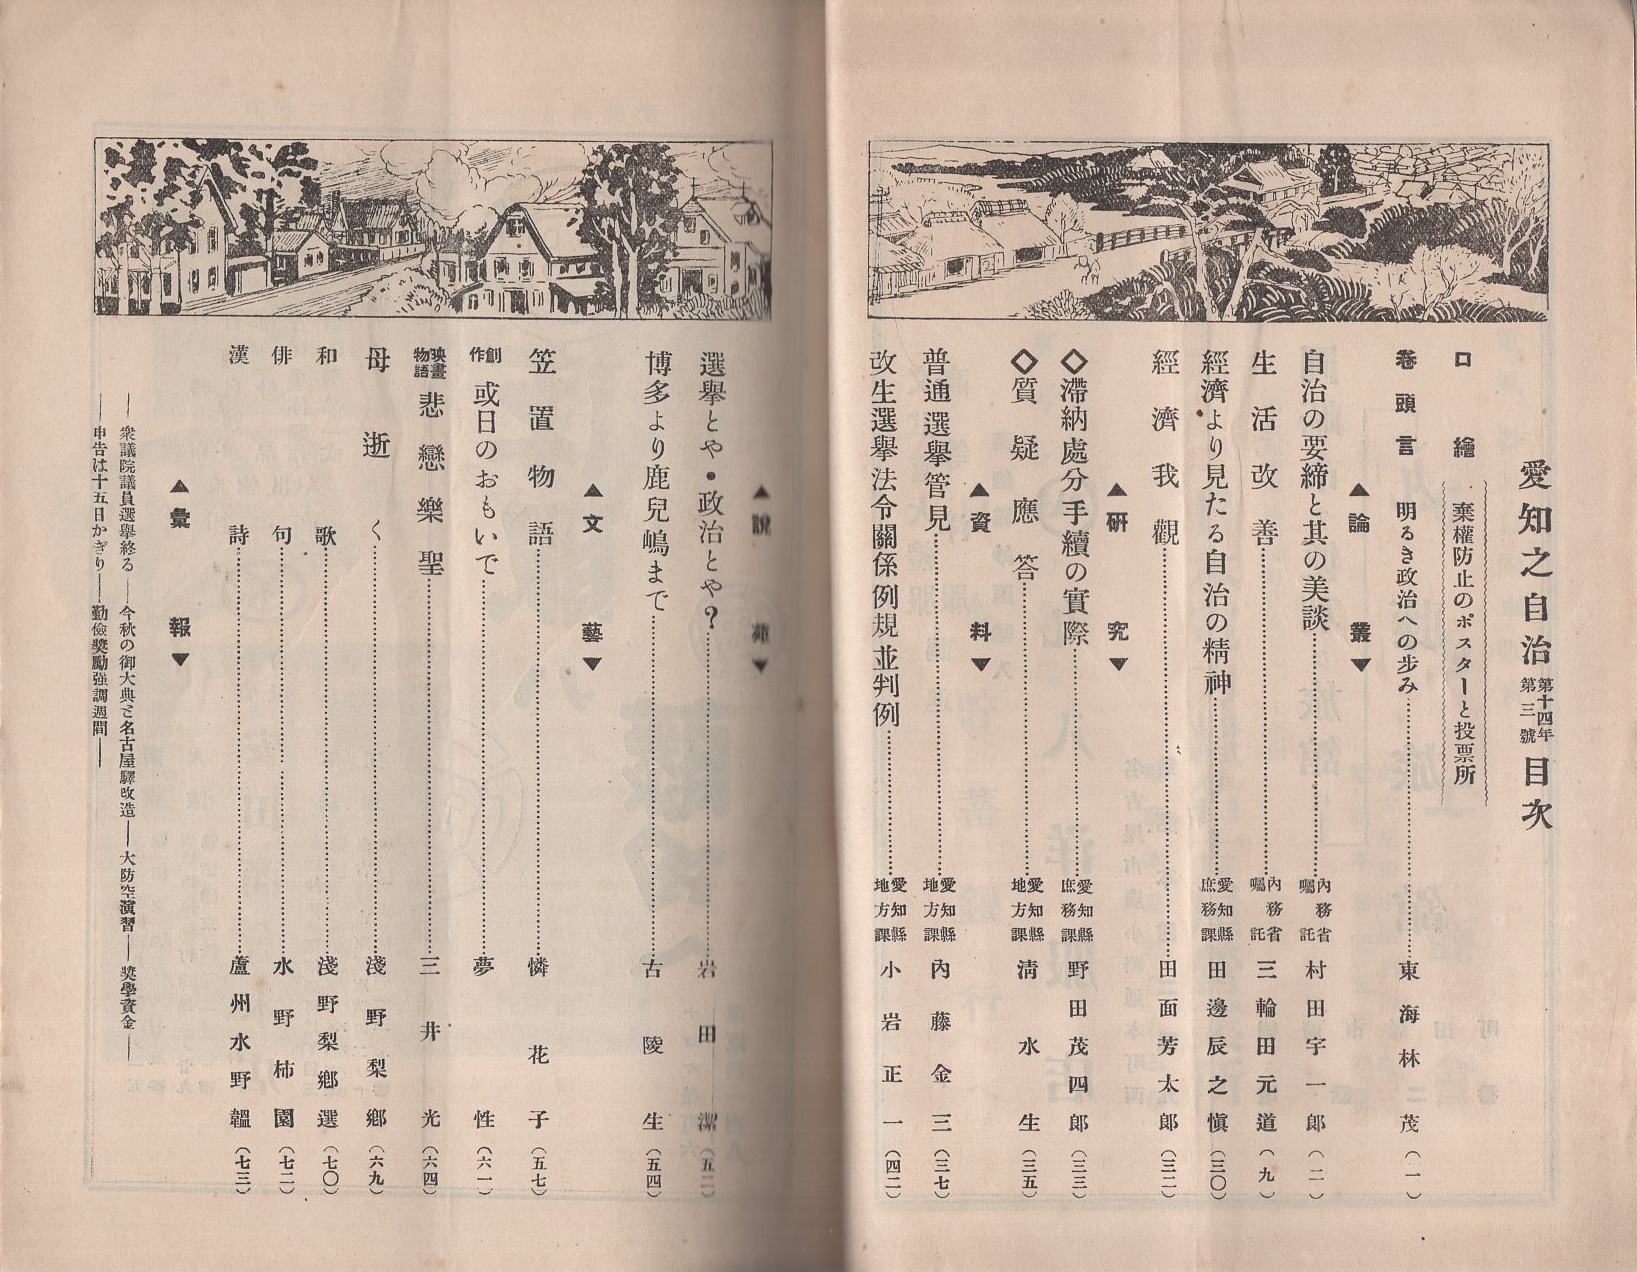 愛知之自治 第十四年第三號 目次
口繪 棄權防止のポスターと投票所
卷頭言 明るき政治への步み 東海林茂 (一)
▲論叢▼
自治の要締と其の美談 內務省囑託 村田宇一郎 (二)
生活改善 內務省囑託 三輪田元道 (九)
經濟より見たる自治の精神 愛知縣庶務課 田邊辰之愼 (三〇)
經濟我觀 田面芳太郞 (三二)
▲硏究▼
◇滯納處分手續の實際 愛知縣庶務課 野田茂四郞 (三三)
◇質疑應答 愛知縣地方課 淸水生 (三五)
▲資料▼
普通選擧管見 愛知縣地方課 內藤金三 (三七)
改生選擧法令關係例規並判例 愛知縣地方課 小岩正一 (四二)
▲說苑▼
選擧とや・政治とや? 岩田潔 (五二)
博多より鹿兒嶋まで 古陵生 (五四)
▲文藝▼
笠置物語 憐花子 (五七)
創作 或日のおもいで 夢性 (六一)
映畫物語 悲戀樂聖 三井光 (六四)
母逝く 淺野梨鄕 (六九)
和歌 淺野梨鄕選 (七〇)
俳句 水野柿園 (七二)
漢詩 蘆州水野韞 (七三)
▲彙報▼
―衆議院議員選擧終る―今秋の御大典と名古屋驛改造―大防空演習―奬學資金―
―申吿は十五日かぎり―勤儉奬勵强調週間―